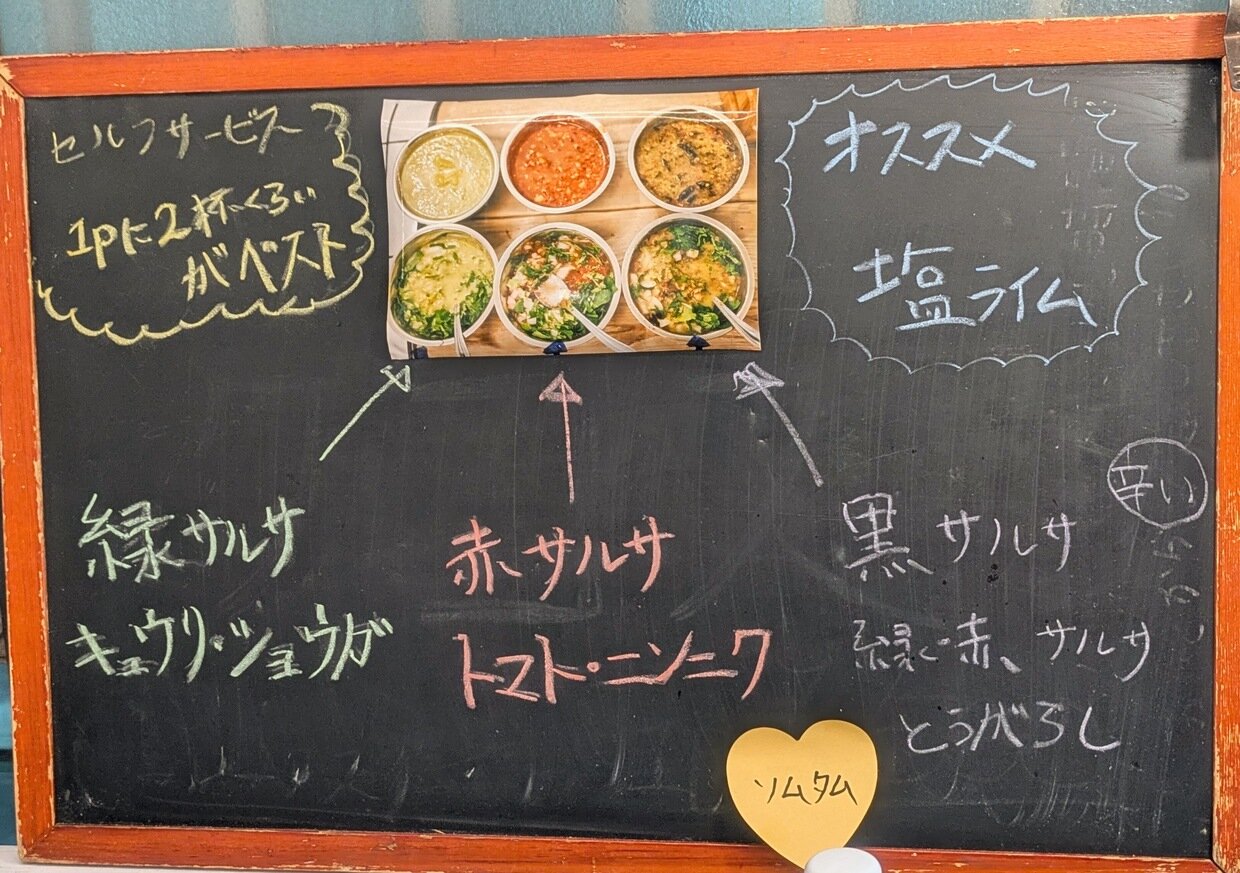 セルフサービス
1pに2杯くらい
がベスト
オススメ
塩ライム
緑サルサ
キュウリ・ショウガ
赤サルサ
トマト・ニンニク
辛い
黒サルサ
緑・赤、サルサ
とうがらし
ソムタム